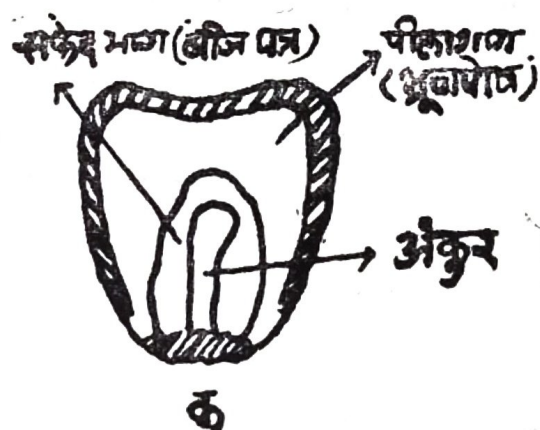 सफेद भाग (बीज पत्र)
पीला भाग
(भ्रूणपोष)
अंकुर
क